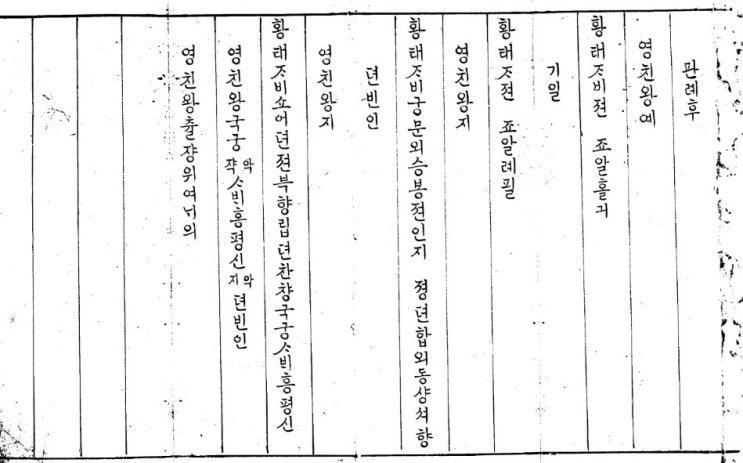 관례후
영친왕예
황태ᄌᆞ비젼 죠알홀긔
기일
황태ᄌᆞ젼 죠알례필
영친왕지
황태ᄌᆞ비궁문외승봉젼인지 졍뎐합외동샹셔향
뎐빈인
영친왕지
황태ᄌᆞ비쇼어뎐젼븍향립뎐찬챵국궁ᄉᆞᄇᆡ흥평신
영친왕국궁악쟉ᄉᆞᄇᆡ흥평신악지뎐빈인
영친왕출쟝위여ᄂᆡ의